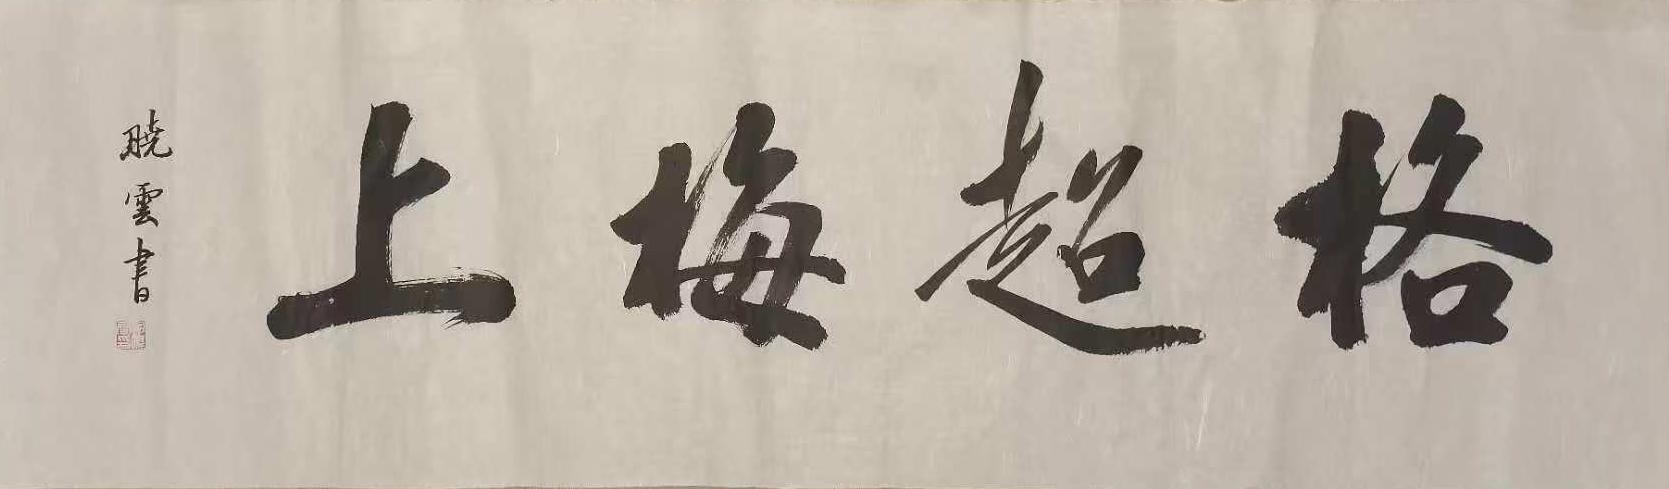 格超梅上
曉雲書